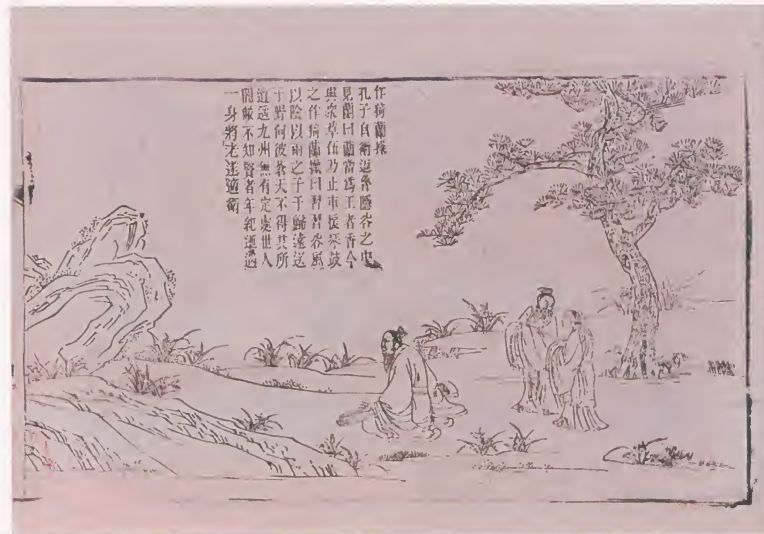 作猗蘭操
孔子自衛返魯隱谷之中
見蘭曰蘭當爲王者香今
與衆草伍乃止車援琴鼓
之作猗蘭操曰習習谷風
以陰以雨之子于歸遠送
于野何彼蒼天不得其所
逍遥九州無有定處世人
闇蔽不知賢者年紀逝邁
一身將老遂適衛